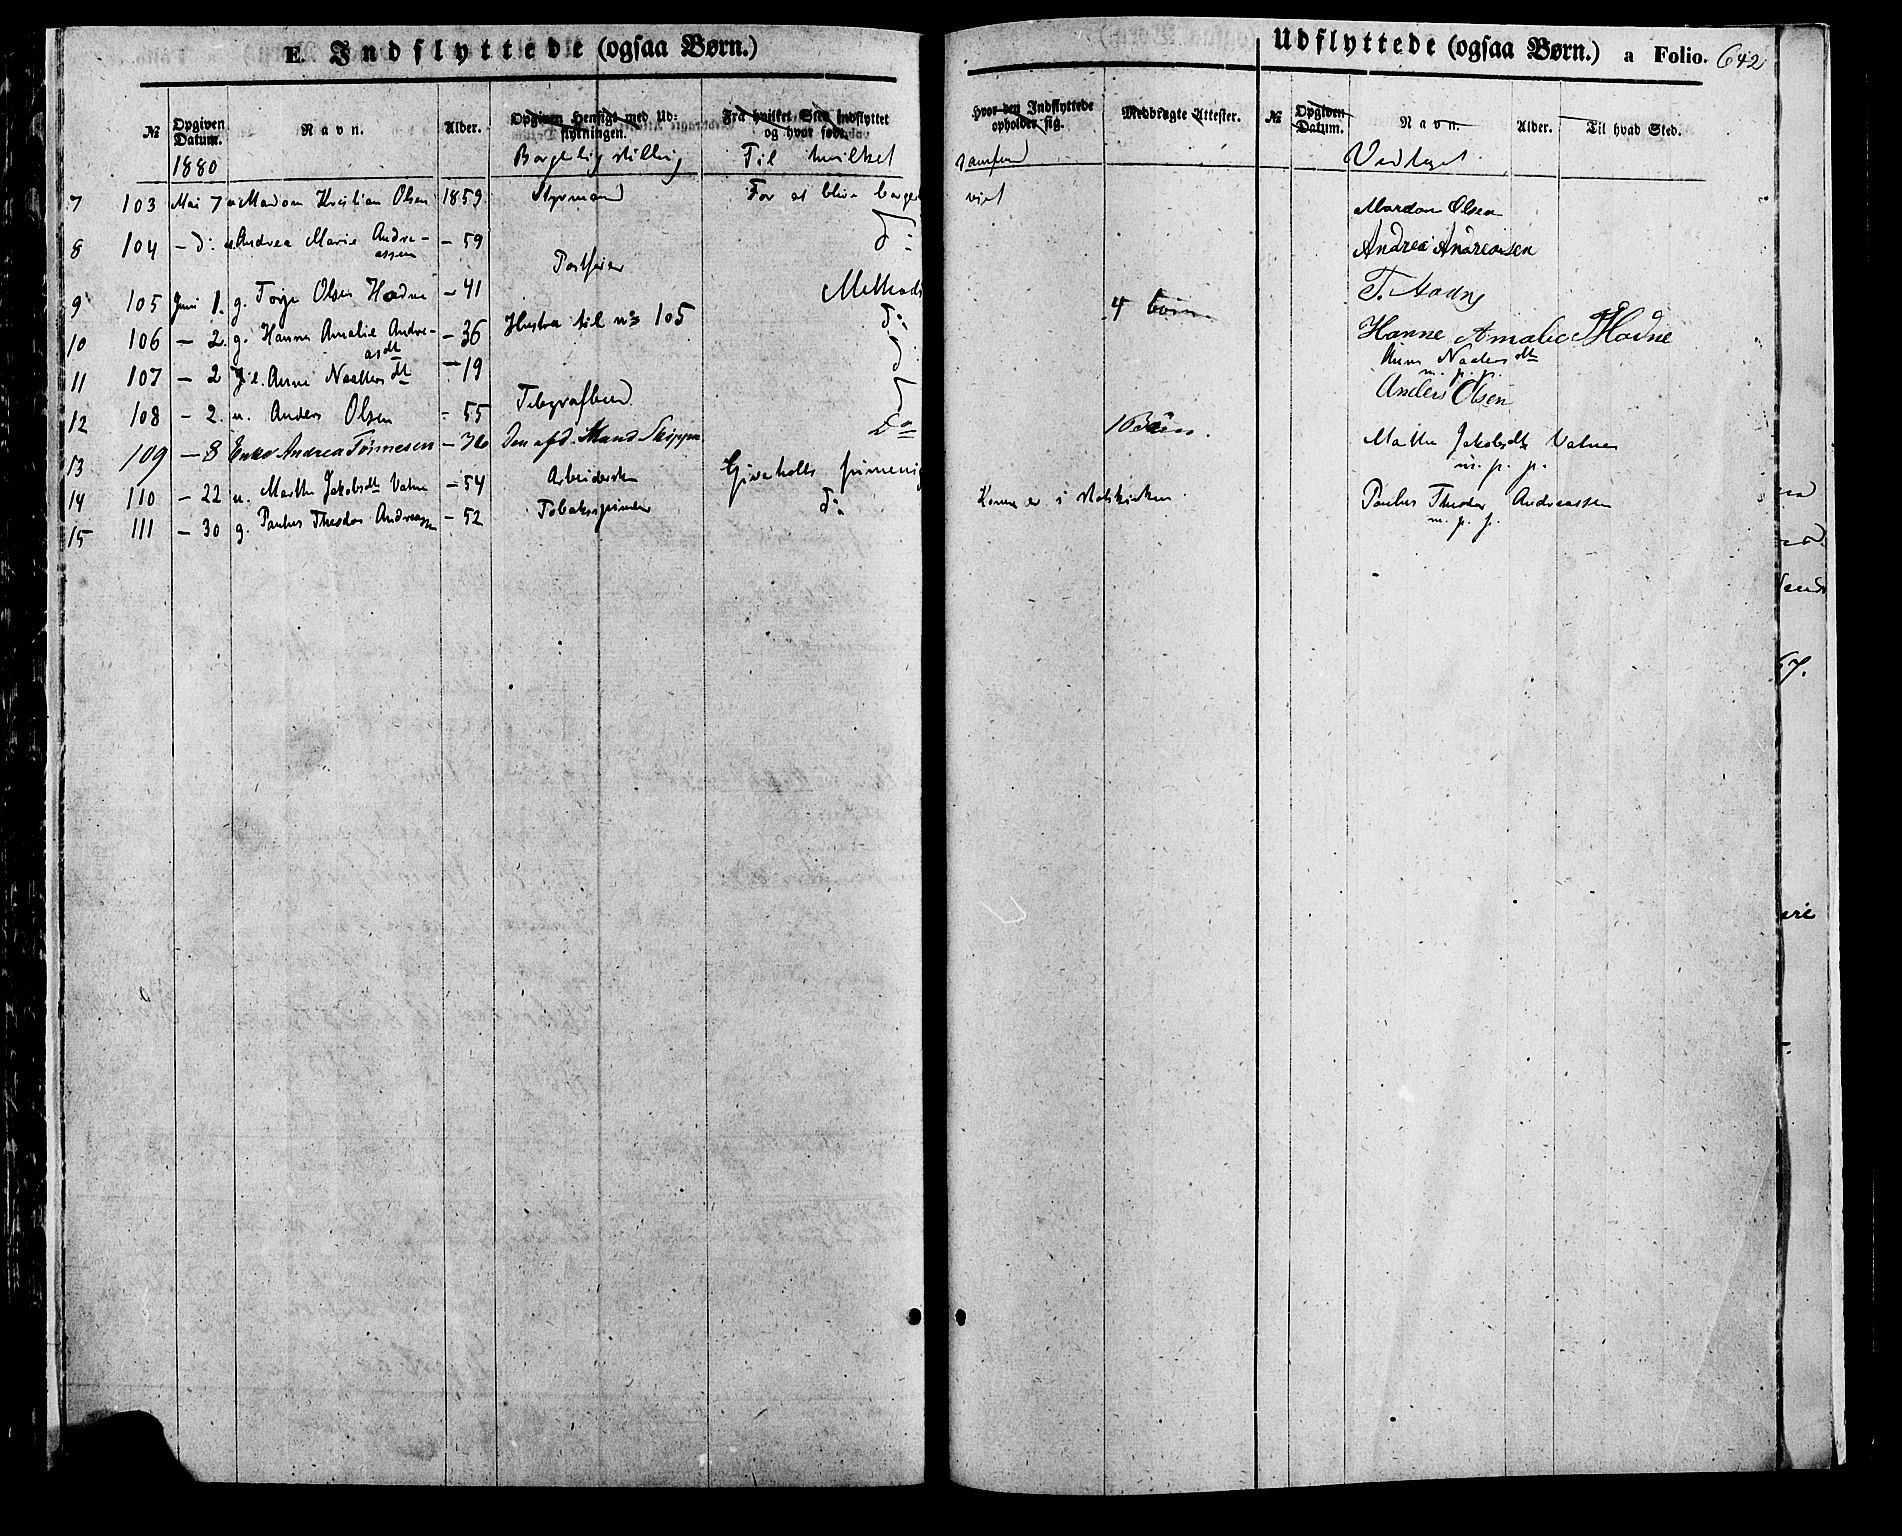 E. Indflyttede (ogsaa Børn.)
Udflyttede (ogsaa Børn.) a Folio. 642
№ Opgiven Datum. Navn. Alder. Opgiven Hensigt med Udflytningen. Fra hvilket Sted Indflyttet og hvor født.
Hvor den Indflyttede opholder sig. Meddragte Attester. № Opgiven Datum. Navn. Alder. Til hvad Sted.
1880 Borgerlig stilling Til hvilket samfund Vedtaget
7 103 Mai 7 Mardon Kristian Olsen 1859 Styrmand For at blive borgerl viet Mardon Olsen
8 104 - d: Andrea Marie Andreassen - 59 d: Andrea Andreassen
9 105 Juni 1. g. Torje Olsen Hodne - 41 Postfører Methodi 4 børn T. Hodne
10 106 - 2. g. Hanne Amalie Andreasdt - 36 Hustru til no 105 d: Hanne Amalie Hodne
11 107 - 2 Anne Naadlers dt - 19 Anne Naadlersdt
m. p. p.
12 108 - 2. u. Anders Olsen - 55 Telegrafbud Anders Olsen
13 109 - 8 Enke Andrea Tønnesen - 36 Den afd. Mand Skipper do 10 Børn. 
14 110 - 22 u. Marthe Jakobsdt Valne - 54 Arbeiderske Marthe Jakobsdt Valne
m. p. p.
15 111 - 30 g. Paulus Theodor Andreassen - 52 Tobaksspinder d: Konen er i statskirken Paulus Theodor Andreassen
m. p. p.